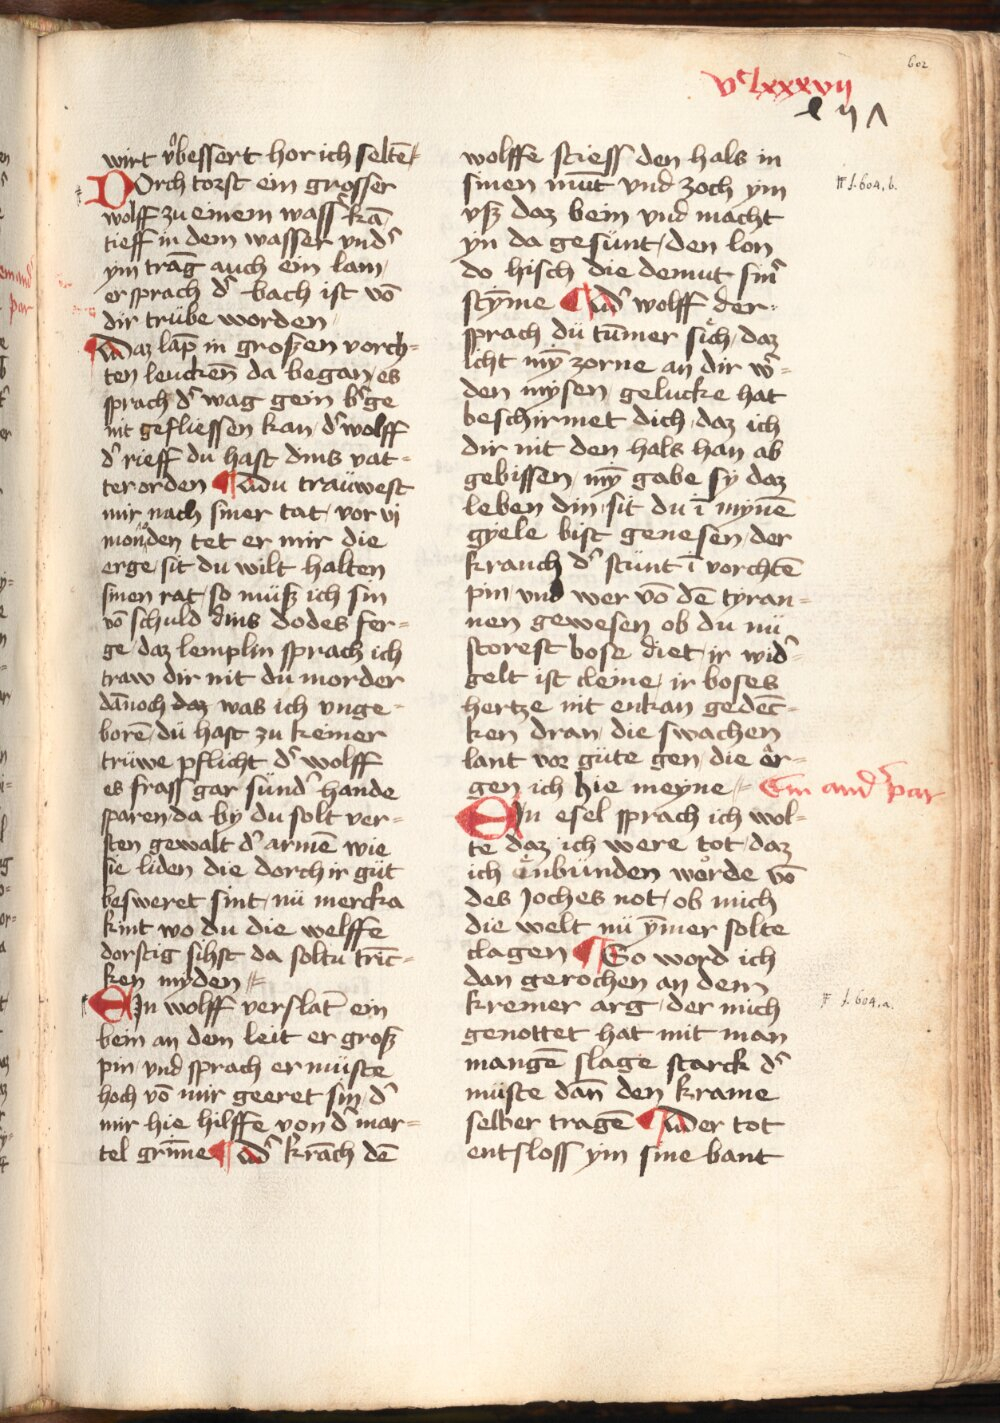 602
vᶜlxxxvij
wirt v̉bessert hor ich selte᷑
DOrch torst ein grosser
wolff zu einem wass᷑ ka᷑
tieff in dem wasser vnd᷑
ym trag auch ein lam
er sprach d᷑ bach ist vo᷑
dir trübe worden
Daz lap᷑ in großen vorch⸗
ten leucken᷑ da began es
sprach d᷑ wag gein b᷑ge
nit gefliessen kan d᷑ wolff
d᷑ rieff du hast dins vat⸗
ter orden ¶ Du trauwest
mir nach siner tat vor vj
monden tet er mir die
erge sit du wilt halten
sinen rat so müß ich sin
vo᷑ schuld dins dodes fer⸗
ge daz lemplin sprach ich
traw dir nit du morder
dan᷑och daz was ich vnge⸗
bore᷑ dü hast zu keiner
trüwe pflicht d᷑ wolff
es frass gar sünd᷑ hande
sparen da by du solt ver⸗
sten gewalt d᷑ arme᷑ wie
sie liden die dorch ir güt
besweret sint nü mercka
kint wo du die welffe
dorstig sihst da soltu tric᷑⸗
ken myden
EIn wolff verslat᷑ ein
bein an dem leit er groß
pin vnd sprach er müste
hoch vo᷑ mir geeret sin d᷑
mir hie hilffe von d᷑ mar⸗
tel grim᷑e ¶ D᷑ kra᷑ch de᷑
wolffe stiess den hals in
sinen mu᷑t vnd zoch ym
vß daz bein vnd macht
yn da gesünt den lon
do hisch die demut sin᷑
stym᷑e ¶ D᷑ wolff der⸗
sprach dü tu᷑mer sich daz
icht my᷑ zorne an dir w᷑⸗
den mysen gelucke hat
beschirmet dich daz ich
dir nit den hals han ab
gebissen my᷑ gabe sy daz
leben din sit du i᷑ myne᷑
gyele bist genesen der
krauch d᷑ stünt i᷑ vorchte᷑
pin vnd wer vo᷑ de᷑ tyran⸗
nen gewesen ob du nü
storest bose diet ir wid᷑⸗
gelt ist cleine ir boses
hertze nit enkan gedec᷑⸗
ken dran die swachen
lant vor güte gen die er⸗
gen ich hie meyne Ein and᷑ par
EIn esel sprach ich wol⸗
te daz ich were tot daz
ich enbünden worde vo᷑
des Joches not ob mich
die welt nü ym᷑er solte
clagen ¶ So word ich
dan gerochen an dem
kremer arg der mich
genottet hat mit man
mange᷑ slage starck d᷑
müste dan᷑ den krame
selber trage᷑ ¶ Der tot
entsloss ym sine bant
f. 604, b.
f. 604, a.